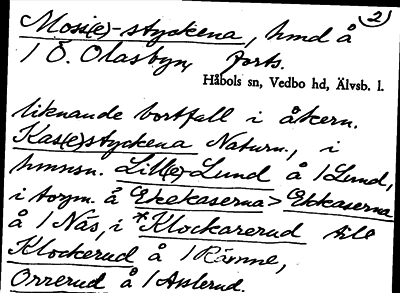 2)
Moss(e)-styckena, hmd å
1 Ö. Olasbyn, forts.
Håbols sn, Vedbo hd, Älvsb. l.
liknande bortfall i åkern.
Kas(e)styckena Naturn., i
hmnsn. Lill(e)-Lund å 1 Lund,
i torpn. å Ekekaserna > Ekkaserna
å 1 Näs, i *Klockarerud till
Klockerud å 1 Rämne,
Orrerud å 1 Asslerud.